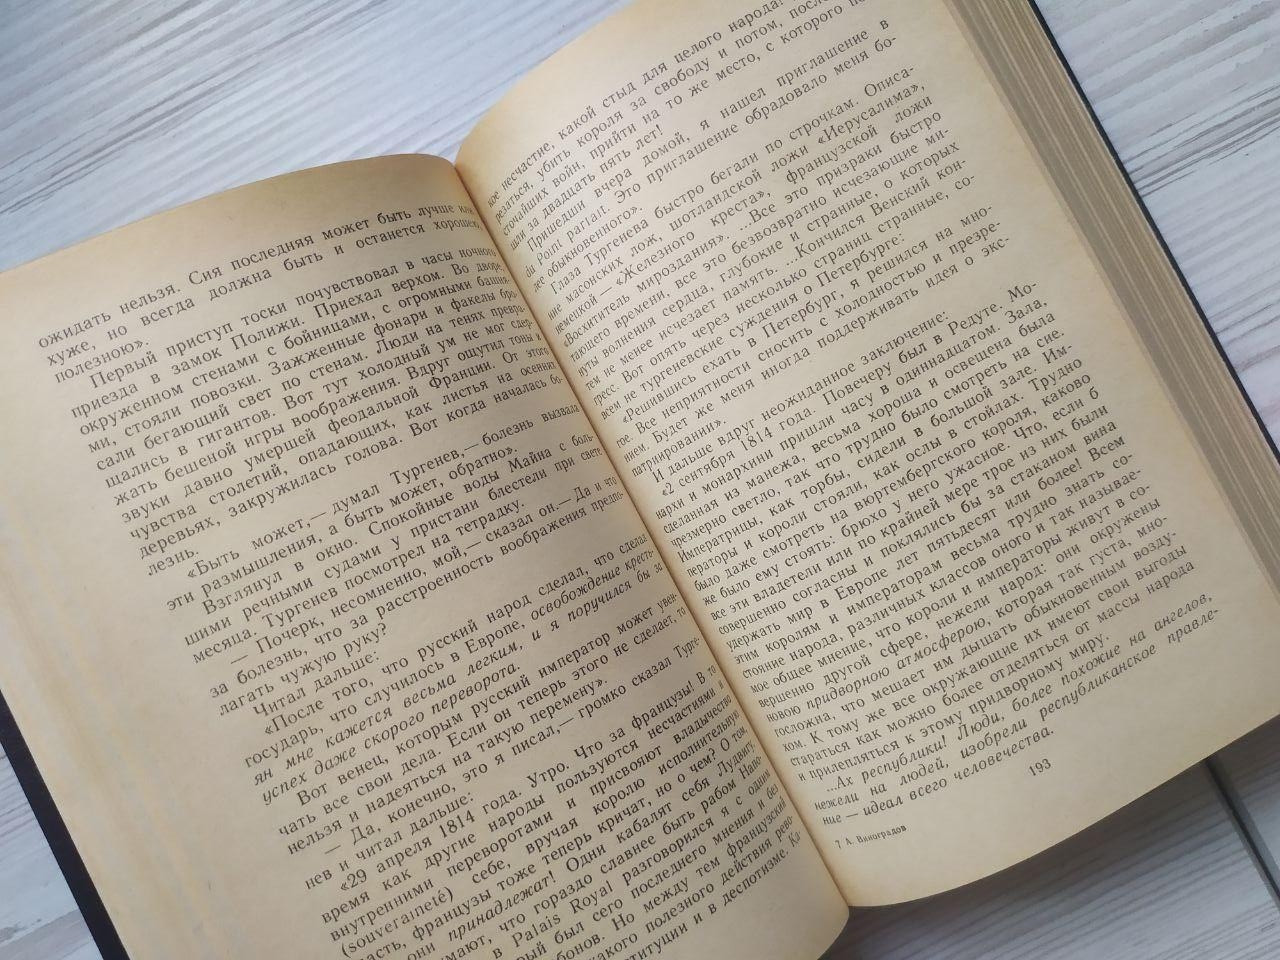 ожидать нельзя. Сия последняя может быть лучше или
хуже, но всегда должна быть и останется хорошею,
полезною».
Первый приступ тоски почувствовал в часы ночного
приезда в замок Полижи. Приехал верхом. Во дворе,
окруженном стенами с бойницами, с огромными башня-
ми, стояли повозки. Зажженные фонари и факелы бро-
сали бегающий свет по стенам. Люди на тенях превра-
щались в гигантов. Вот тут холодный ум не мог сдер-
жать бешеной игры воображения. Вдруг ощутил тоны и
звуки давно умершей феодальной Франции. От этого
чувства столетий, опадающих, как листья на осенних
деревьях, закружилась голова. Вот когда началась бо-
лезнь.
«Быть может,— думал Тургенев,— болезнь вызвала
эти размышления, а быть может, обратно».
Взглянул в окно. Спокойные воды Майна с боль-
шими речными судами у пристани блестели при свете
месяца. Тургенев посмотрел на тетрадку.
— Почерк, несомненно, мой,— сказал он.— Да и что
за болезнь, что за расстроенность воображения предпо-
лагать чужую руку?
Читал дальше:
«После того, что русский народ сделал, что сделал
государь, что случилось в Европе, освобождение кресть-
ян мне кажется весьма легким, и я поручился бы за
успех даже скорого переворота.
Вот венец, которым русский император может увен-
чать все свои дела. Если он теперь этого не сделает, то
нельзя и надеяться на такую перемену».
— Да, конечно, это я писал,— громко сказал Турге-
нев и читал дальше:
«29 апреля 1814 года. Утро. Что за французы! В то
время как другие народы пользуются несчастиями и
внутренними переворотами и присвояют владычество
(souveraineté) себе, вручая королю исполнительную
власть, французы тоже теперь кричат, но о чем? О том,
они принадлежат! Одни кабалят себя Лудвигу,
мают, что гораздо славнее быть рабом Напо-
в Palais Royal разговорился я с одним
рый был сего последнего мнения и без
бонов. Но между тем французский
какого полезного действия рево-
ституции и в деспотизме. Ка-
кое несчастие, какой стыд для целого народа!
резаться, убить короля за свободу и потом, после
сточайших войн, прийти на то же место, с которого по-
шли за двадцать пять лет!
Пришедши вчера домой, я нашел приглашение в
du Point parfait. Это приглашение обрадовало меня бо-
лее обыкновенного».
Глаза Тургенева быстро бегали по строчкам. Описа-
ние масонских лож, шотландской ложи «Иерусалима»,
немецкой — «Железного креста», французской ложи
«Восхититель мироздания». ...Все это призраки быстро
тающего времени, все это безвозвратно исчезающие ми-
нуты волнения сердца, глубокие и странные, о которых
тем не менее исчезает память. ...Кончился Венский кон-
гресс. Вот опять через несколько страниц странные, со-
всем не тургеневские суждения о Петербурге:
«Решившись ехать в Петербург, я решился на мно-
гое. Все неприятности сносить с холодностью и презре-
нием. Будет же меня иногда поддерживать идея о экс-
патриировании».
И дальше вдруг неожиданное заключение:
«2 сентября 1814 года. Повечеру был в Редуте. Мо-
нархи и монархини пришли часу в одиннадцатом. Зала,
сделанная из манежа, весьма хороша и освещена была
чрезмерно светло, так что трудно было смотреть на сие.
Императрицы, как торбы, сидели в большой зале. Им-
ператоры и короли стояли, как ослы в стойлах. Трудно
было даже смотреть на виюртембергского короля, каково
же было ему стоять: брюхо у него ужасное. Что, если б
все эти владетели или по крайней мере трое из них были
совершенно согласны и поклялись бы за стаканом вина
удержать мир в Европе лет пятьдесят или более! Всем
этим королям и императорам весьма трудно знать со-
стояние народа, различных классов оного и так называе-
мое общее мнение, что короли и императоры живут в со-
вершенно другой сфере, нежели народ: они окружены
новою придворною атмосферою, которая так густа, мно-
госложна, что мешает им дышать обыкновенным возду-
хом. К тому же все окружающие их имеют свои выгоды
стараться как можно более отделяться от массы народа
и прилепляться к этому придворному миру.
...Ах республики! Люди, более похожие на ангелов,
нежели на людей, изобрели республиканское правле-
ние — идеал всего человечества.
7 А. Виноградов
193